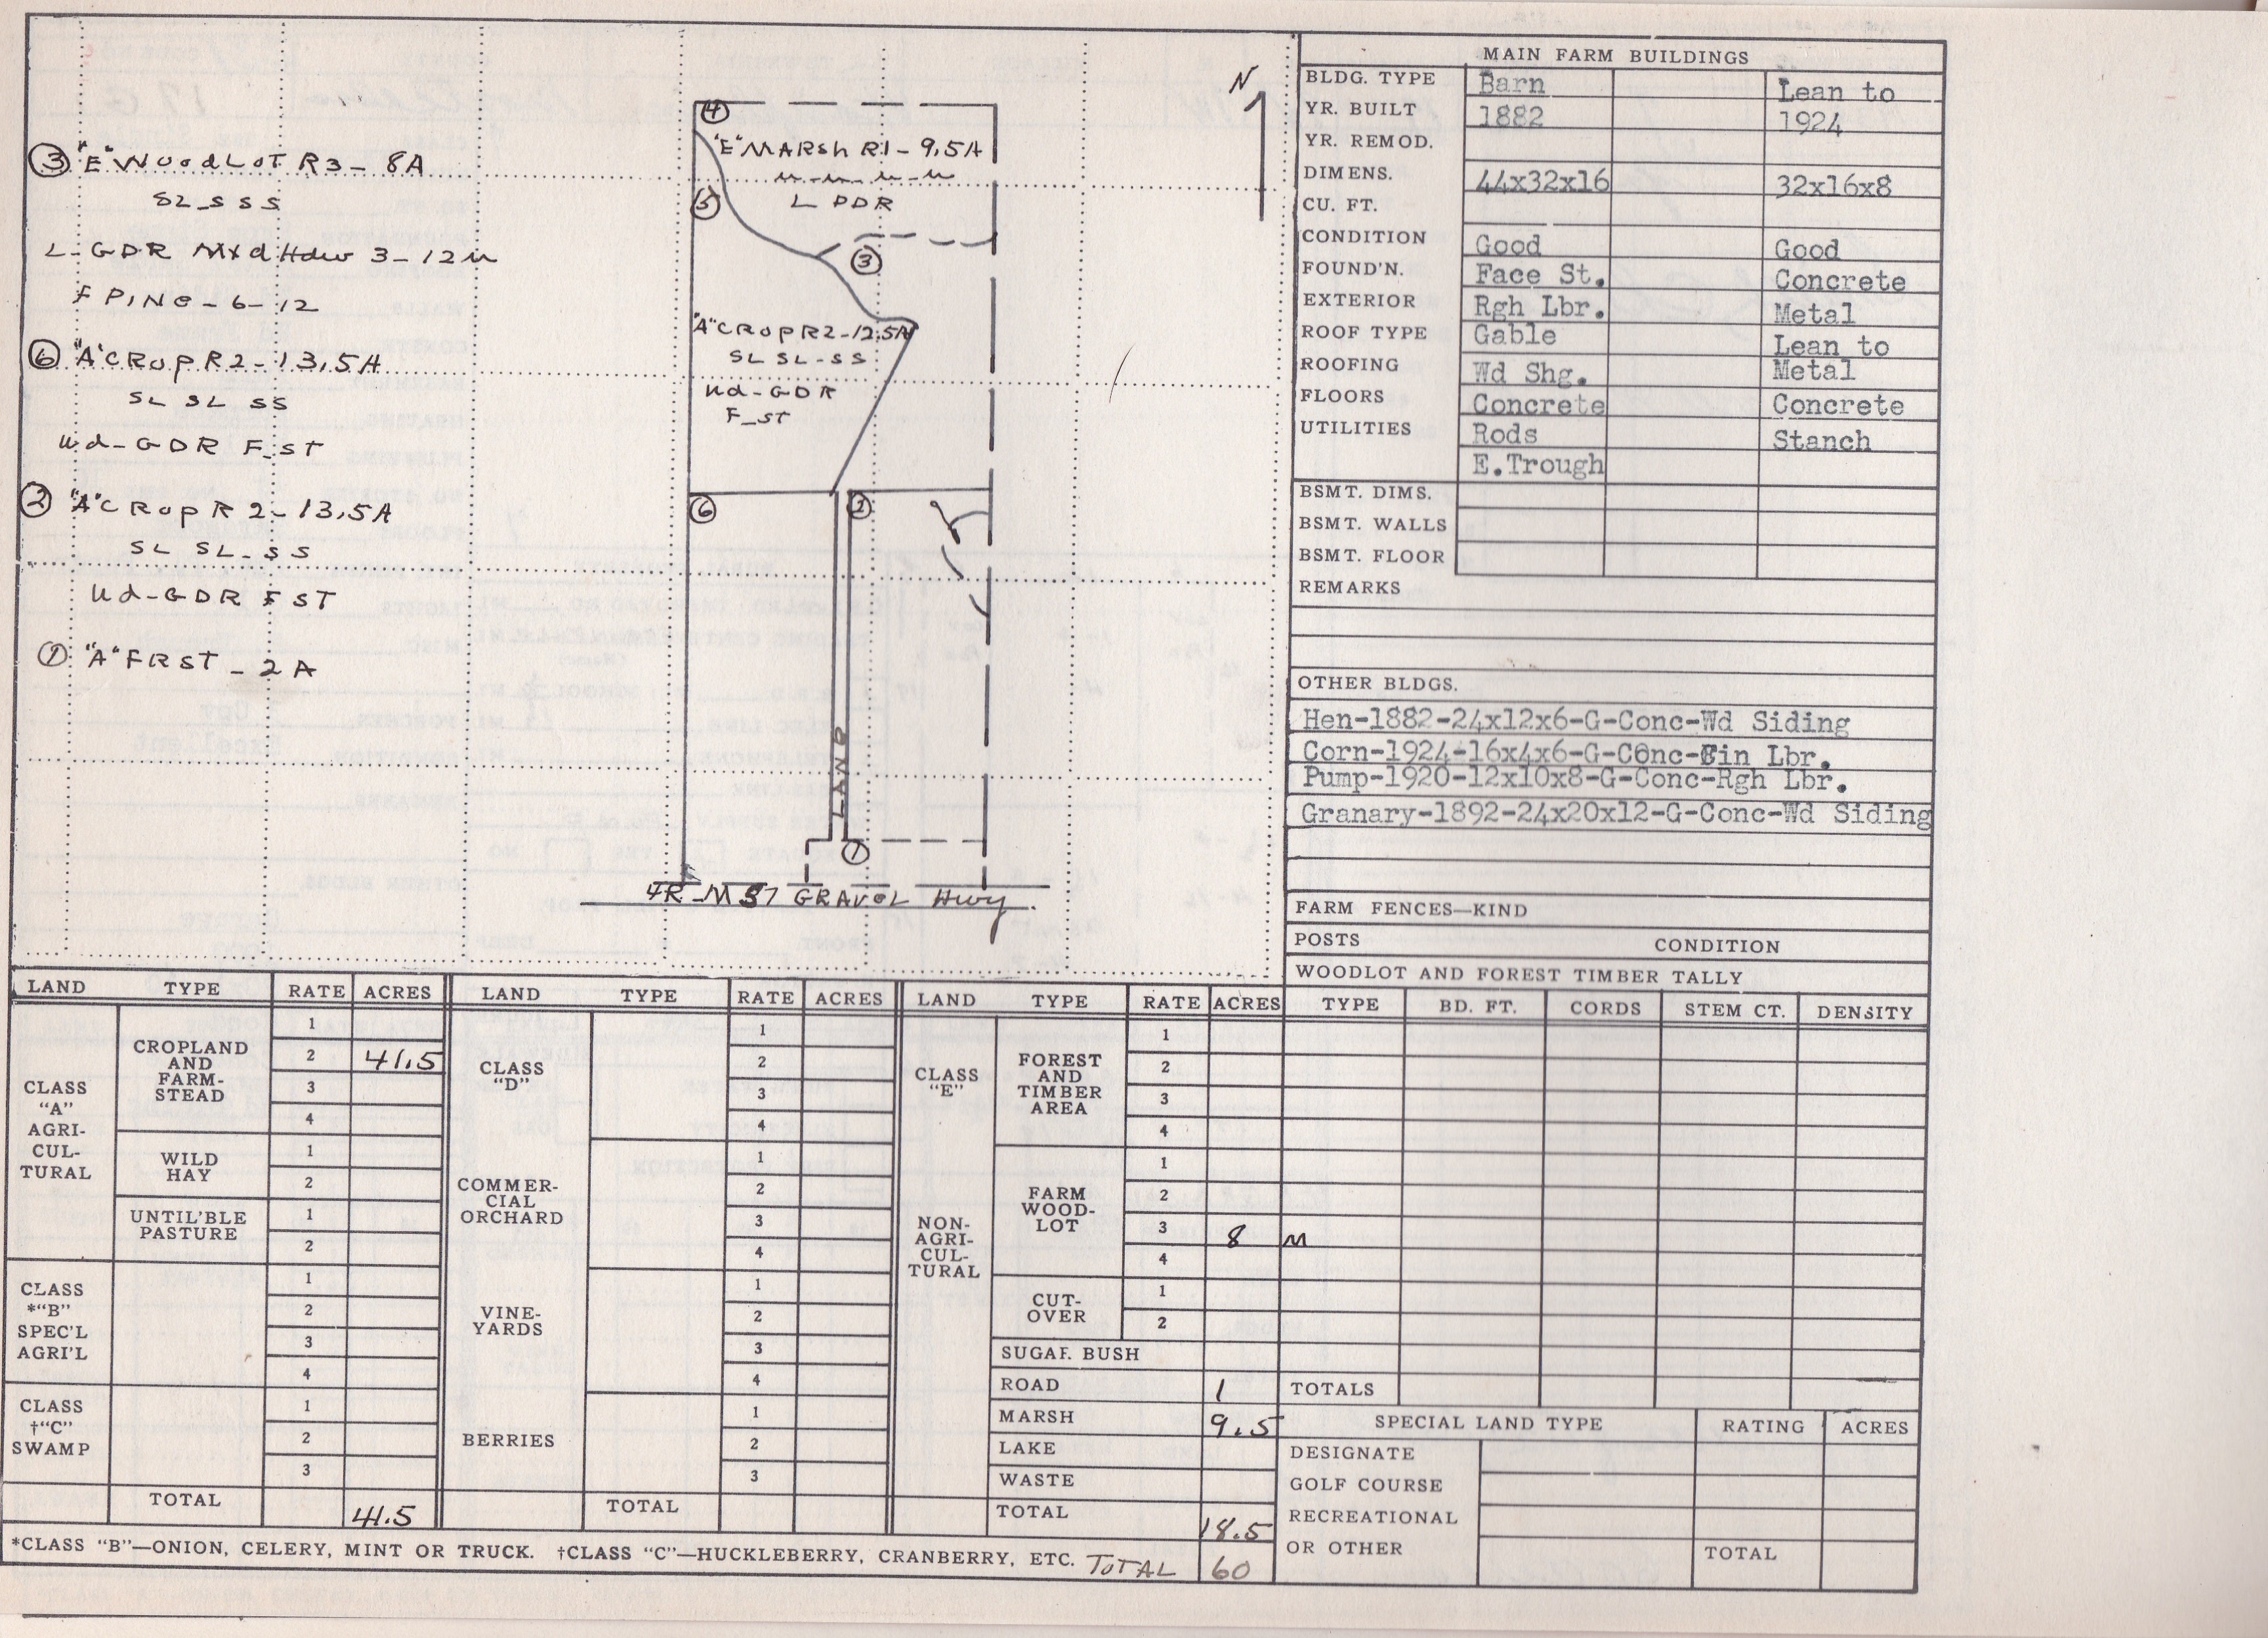 ③ "E" WoodLoT R3 - 8A
SL-S SS
L-GDR MxdHdw 3-12"
F PINE-6-12
⑥ "A" CRop R2-13.5A
SL SL SS
Ud-GDR F-ST
② "A" CRop R2-13.5A
SL SL-SS
Ud-GDR F ST
① "A" FRST - 2A
N
④
"E" MARSh R1-9.5A
L PDR
⑤
③
"A" CRop R2-12.5A
SL SL-SS
Ud-GDR
F-ST
⑥
②
LANE
①
4R-M 57 GRAVEL Hwy.
MAIN FARM BUILDINGS
BLDG. TYPE Barn Lean to
YR. BUILT 1882 1924
YR. REMOD.
DIMENS. 44x32x16 32x16x8
CU. FT.
CONDITION Good Good
FOUND'N. Face St. Concrete
EXTERIOR Rgh Lbr. Metal
ROOF TYPE Gable Lean to
ROOFING Wd Shg. Metal
FLOORS Concrete Concrete
UTILITIES Rods Stanch
E.Trough
BSMT. DIMS.
BSMT. WALLS
BSMT. FLOOR
REMARKS
OTHER BLDGS.
Hen-1882-24x12x6-G-Conc-Wd Siding
Corn-1924-16x4x6-G-Conc-Fin Lbr.
Pump-1920-12x10x8-G-Conc-Rgh Lbr.
Granary-1892-24x20x12-G-Conc-Wd Siding
FARM FENCES—KIND
POSTS CONDITION
WOODLOT AND FOREST TIMBER TALLY
TYPE BD. FT. CORDS STEM CT. DENSITY
M
TOTALS
SPECIAL LAND TYPE RATING ACRES
DESIGNATE
GOLF COURSE
RECREATIONAL
OR OTHER TOTAL
LAND TYPE RATE ACRES
CLASS
"A"
AGRI-
CUL-
TURAL
CROPLAND
AND
FARM-
STEAD
1
2 41.5
3
4
WILD
HAY
1
2
UNTIL'BLE
PASTURE
1
2
CLASS
*"B"
SPEC'L
AGRI'L
1
2
3
4
CLASS
†"C"
SWAMP
1
2
3
TOTAL 41.5
LAND TYPE RATE ACRES
CLASS
"D"
1
2
3
4
COMMER-
CIAL
ORCHARD
1
2
3
4
VINE-
YARDS
1
2
3
4
BERRIES
1
2
3
TOTAL
LAND TYPE RATE ACRES
CLASS
"E"
NON-
AGRI-
CUL-
TURAL
FOREST
AND
TIMBER
AREA
1
2
3
4
FARM
WOOD-
LOT
1
2
3 8
4
CUT-
OVER
1
2
SUGAR BUSH
ROAD 1
MARSH 9.5
LAKE
WASTE
TOTAL 18.5
*CLASS "B"—ONION, CELERY, MINT OR TRUCK. †CLASS "C"—HUCKLEBERRY, CRANBERRY, ETC. TOTAL 60